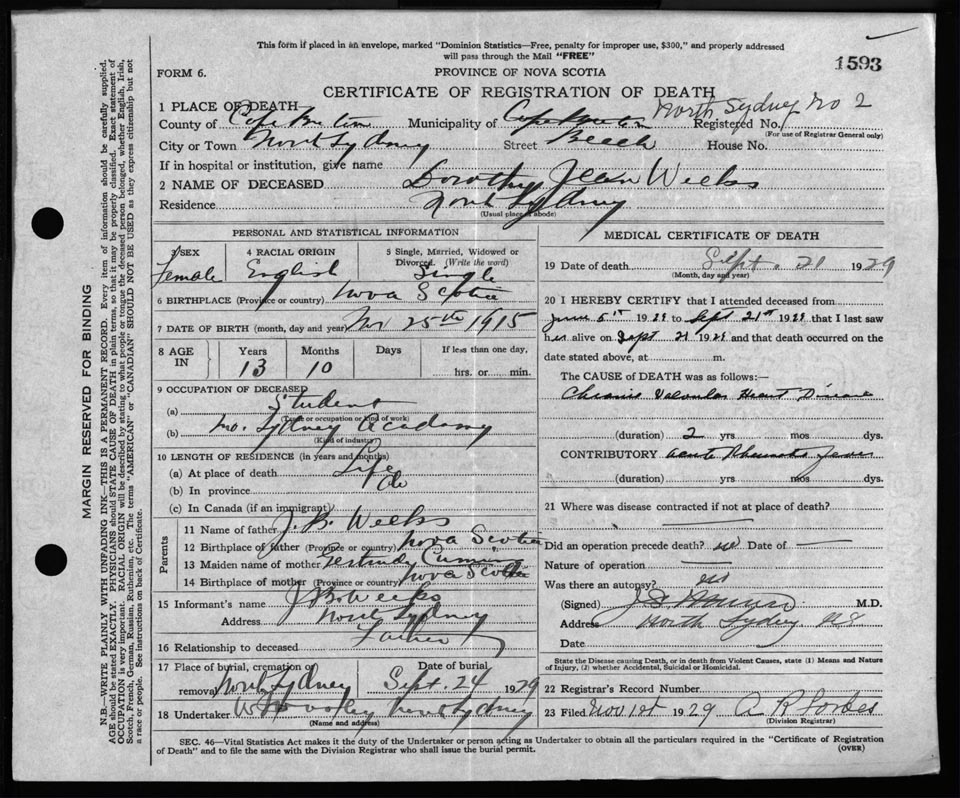 This form if placed in an envelope, marked "Dominion Statistics—Free, penalty for improper use, $300," and properly addressed
will pass through the Mail "FREE"
1593
FORM 6.
PROVINCE OF NOVA SCOTIA
CERTIFICATE OF REGISTRATION OF DEATH
1 PLACE OF DEATH
North Sydney No 2
County of Cape Breton Municipality of Cape Breton Registered No.
(For use of Registrar General only)
City or Town North Sydney Street Beech House No.
If in hospital or institution, give name
2 NAME OF DECEASED Dorothy Jean Weeks
Residence North Sydney
(Usual place of abode)
PERSONAL AND STATISTICAL INFORMATION
3 SEX Female
4 RACIAL ORIGIN English
5 Single, Married, Widowed or Divorced (Write the word) Single
6 BIRTHPLACE (Province or country) Nova Scotia
7 DATE OF BIRTH (month, day and year) Nov 25th 1915
8 AGE IN Years Months Days If less than one day,
13 10 hrs. or min.
9 OCCUPATION OF DECEASED
(a) Student
(Trade or occupation or kind of work)
(b) No. Sydney Academy
(Kind of industry)
10 LENGTH OF RESIDENCE (in years and months)
(a) At place of death Life
(b) In province Do
(c) In Canada (if an immigrant)
Parents
11 Name of father J. B. Weeks
12 Birthplace of father (Province or country) Nova Scotia
13 Maiden name of mother Gertrude
14 Birthplace of mother (Province or country) Nova Scotia
15 Informant's name J B Weeks
Address North Sydney
16 Relationship to deceased Father
17 Place of burial, cremation or removal North Sydney
Date of burial Sept. 24 1929
18 Undertaker North Sydney
(Name and address)
MEDICAL CERTIFICATE OF DEATH
19 Date of death Sept. 21 1929
(Month, day and year)
20 I HEREBY CERTIFY that I attended deceased from
June 5th 1929 to Sept 21st 1929 that I last saw
her alive on Sept 21 1929 and that death occurred on the
date stated above, at m.
The CAUSE of DEATH was as follows:—
Chronic Valvular Heart Disease
(duration) 2 yrs mos dys.
CONTRIBUTORY Acute Rheumatic Fever
(duration) yrs mos dys.
21 Where was disease contracted if not at place of death?
Did an operation precede death? no Date of
Nature of operation
Was there an autopsy? no
(Signed) M.D.
Address North Sydney NS
Date
State the Disease causing Death, or in death from Violent Causes, state (1) Means and Nature
of Injury, (2) whether Accidental, Suicidal or Homicidal.
22 Registrar's Record Number
23 Filed Nov 1st 1929 A R Forbes
(Division Registrar)
SEC. 46—Vital Statistics Act makes it the duty of the Undertaker or person acting as Undertaker to obtain all the particulars required in the "Certificate of Registration
of Death" and to file the same with the Division Registrar who shall issue the burial permit.
(OVER)
MARGIN RESERVED FOR BINDING
N.B.—WRITE PLAINLY WITH UNFADING INK—THIS IS A PERMANENT RECORD. Every item of information should be carefully supplied.
AGE should be stated EXACTLY. PHYSICIANS should STATE CAUSE OF DEATH in plain terms, so that it may be properly classified. Exact statement of
OCCUPATION is very important. RACIAL ORIGIN will be described by stating to what people or tongue the deceased person belonged, whether English, Irish,
Scotch, French, German, Russian, Ruthenian, etc. The terms "AMERICAN" or "CANADIAN" SHOULD NOT BE USED as they express citizenship but not
a race or people. See instructions on back of Certificate.